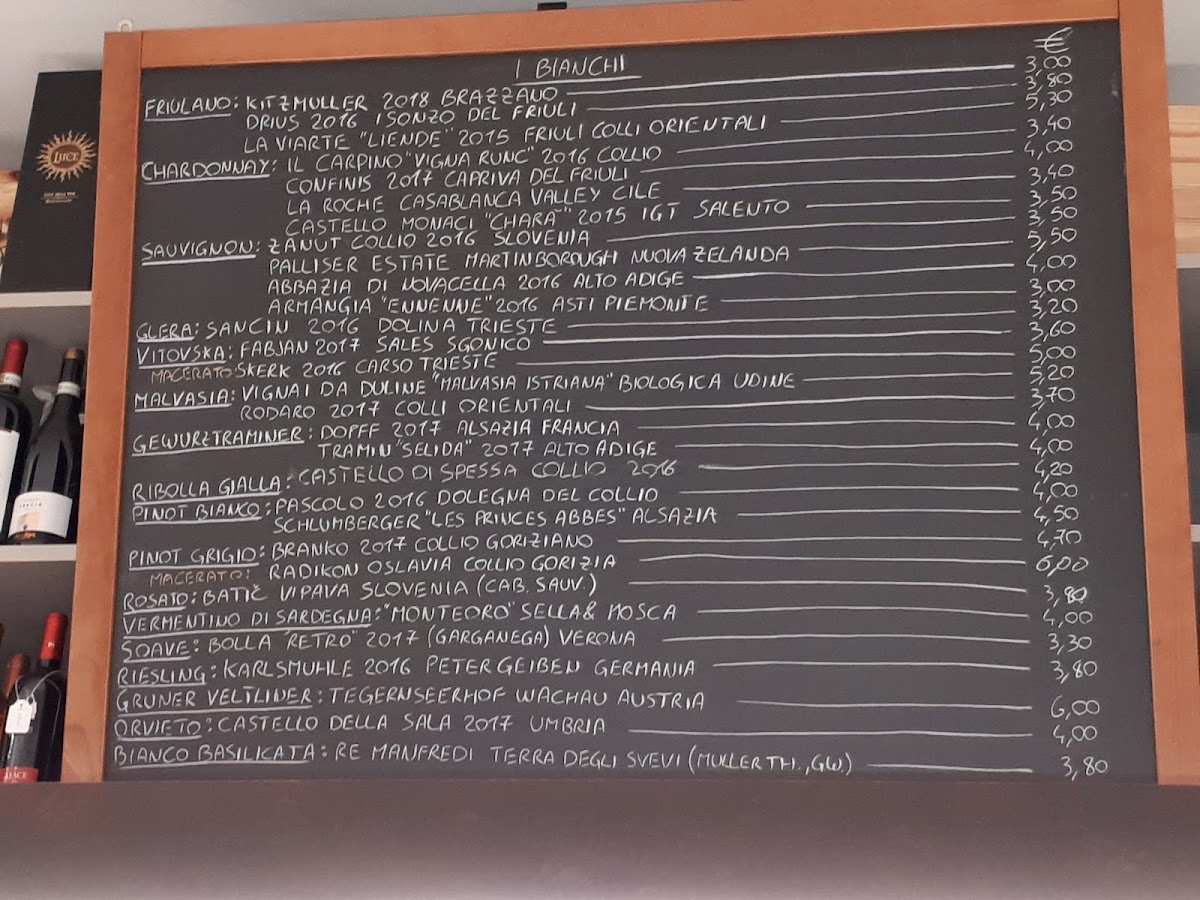 €
I BIANCHI
FRIULANO: KITZMULLER 2018 BRAZZANO 3,00
DRIUS 2016 ISONZO DEL FRIULI 3,80
LA VIARTE "LIENDE" 2015 FRIULI COLLI ORIENTALI 5,30
CHARDONNAY: IL CARPINO "VIGNA RUNC" 2016 COLLIO 3,40
CONFINIS 2017 CAPRIVA DEL FRIULI 4,00
LA ROCHE CASABLANCA VALLEY CILE 3,40
CASTELLO MONACI "CHARA" 2015 IGT SALENTO 3,50
SAUVIGNON: ZANUT COLLIO 2016 SLOVENIA 3,50
PALLISER ESTATE MARTINBOROUGH NUOVA ZELANDA 5,50
ABBAZIA DI NOVACELLA 2016 ALTO ADIGE 4,00
ARMANGIA "ENNENNE" 2016 ASTI PIEMONTE 3,00
GLERA: SANCIN 2016 DOLINA TRIESTE 3,20
VITOVSKA: FABJAN 2017 SALES SGONICO 3,60
MACERATO: SKERK 2016 CARSO TRIESTE 5,00
MALVASIA: VIGNAI DA DULINE "MALVASIA ISTRIANA" BIOLOGICA UDINE 5,20
RODARO 2017 COLLI ORIENTALI 3,70
GEWURZTRAMINER: DOPFF 2017 ALSAZIA FRANCIA 4,00
TRAMIN "SELIDA" 2017 ALTO ADIGE 4,00
RIBOLLA GIALLA: CASTELLO DI SPESSA COLLIO 2016 4,20
PINOT BIANCO: PASCOLO 2016 DOLEGNA DEL COLLIO 4,00
SCHLUMBERGER "LES PRINCES ABBES" ALSAZIA 4,50
PINOT GRIGIO: BRANKO 2017 COLLIO GORIZIANO 4,70
MACERATO: RADIKON OSLAVIA COLLIO GORIZIA 6,00
ROSATO: BATIČ VIPAVA SLOVENIA (CAB. SAUV.) 3,80
VERMENTINO DI SARDEGNA: "MONTEORO" SELLA & MOSCA 4,00
SOAVE: BOLLA "RETRO" 2017 (GARGANEGA) VERONA 3,30
RIESLING: KARLSMUHLE 2016 PETER GEIBEN GERMANIA 3,80
GRUNER VELTLINER: TEGERNSEERHOF WACHAU AUSTRIA 6,00
ORVIETO: CASTELLO DELLA SALA 2017 UMBRIA 4,00
BIANCO BASILICATA: RE MANFREDI TERRA DEGLI SVEVI (MULLER TH., GW.) 3,80
LUCE